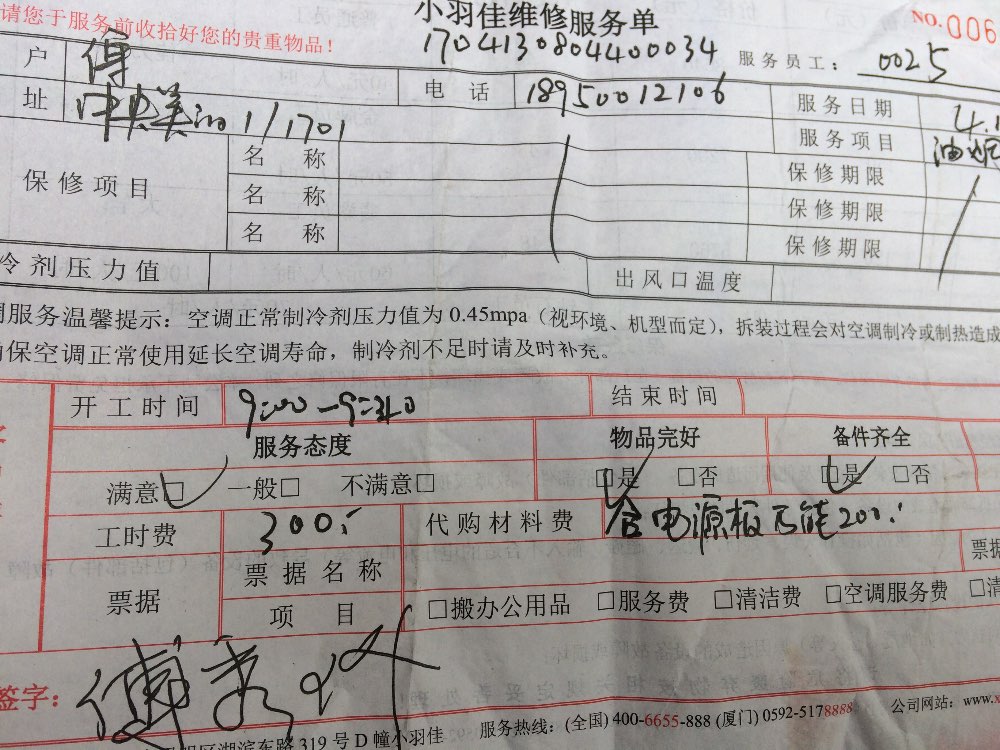 请您于服务前收拾好您的贵重物品！
小羽佳维修服务单
NO.006
1704130804400034
服务员工： 0025
户 傅 电 话 18950012106 服务日期 4.1
址 中央美地1/1701 服务项目 油烟
保修项目 名 称 保修期限
名 称 保修期限
名 称 保修期限
冷剂压力值 出风口温度
服务温馨提示：空调正常制冷剂压力值为 0.45mpa（视环境、机型而定），拆装过程会对空调制冷或制热造成
保空调正常使用延长空调寿命，制冷剂不足时请及时补充。
开工时间 9:00-9:40 结束时间
服务态度 物品完好 备件齐全
满意□ 一般□ 不满意□ □是 □否 □是 □否
工时费 300 代购材料费 含电源板 200
票据 票据名称 票据
项 目 □搬办公用品 □服务费 □清洁费 □空调服务费 □清
签字： 傅秀
区湖滨东路 319 号 D 幢小羽佳 服务热线：(全国) 400-6655-888 (厦门) 0592-5178888 公司网站：www.x